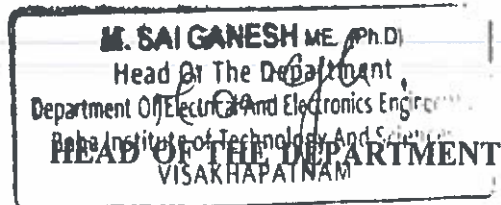 M. SAI GANESH ME. (Ph.D)
Head Of The Department
Department Of Electrical And Electronics
Baba Institute of Technology And Sciences
HEAD OF THE DEPARTMENT
VISAKHAPATNAM